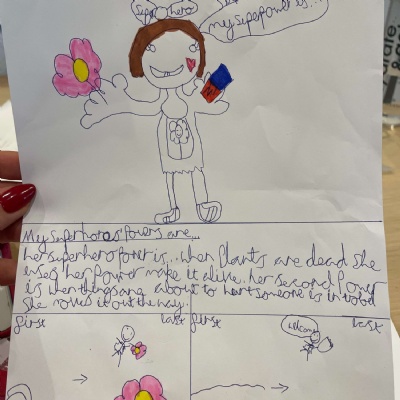 Super hero
my superpower is...
My superheroes powers are...
her superhero power is... when plants are dead she
uses her power make it alive. her second power
is when things are about to hurt someone is in wood
she moves it out the way.
first last first last
welcome